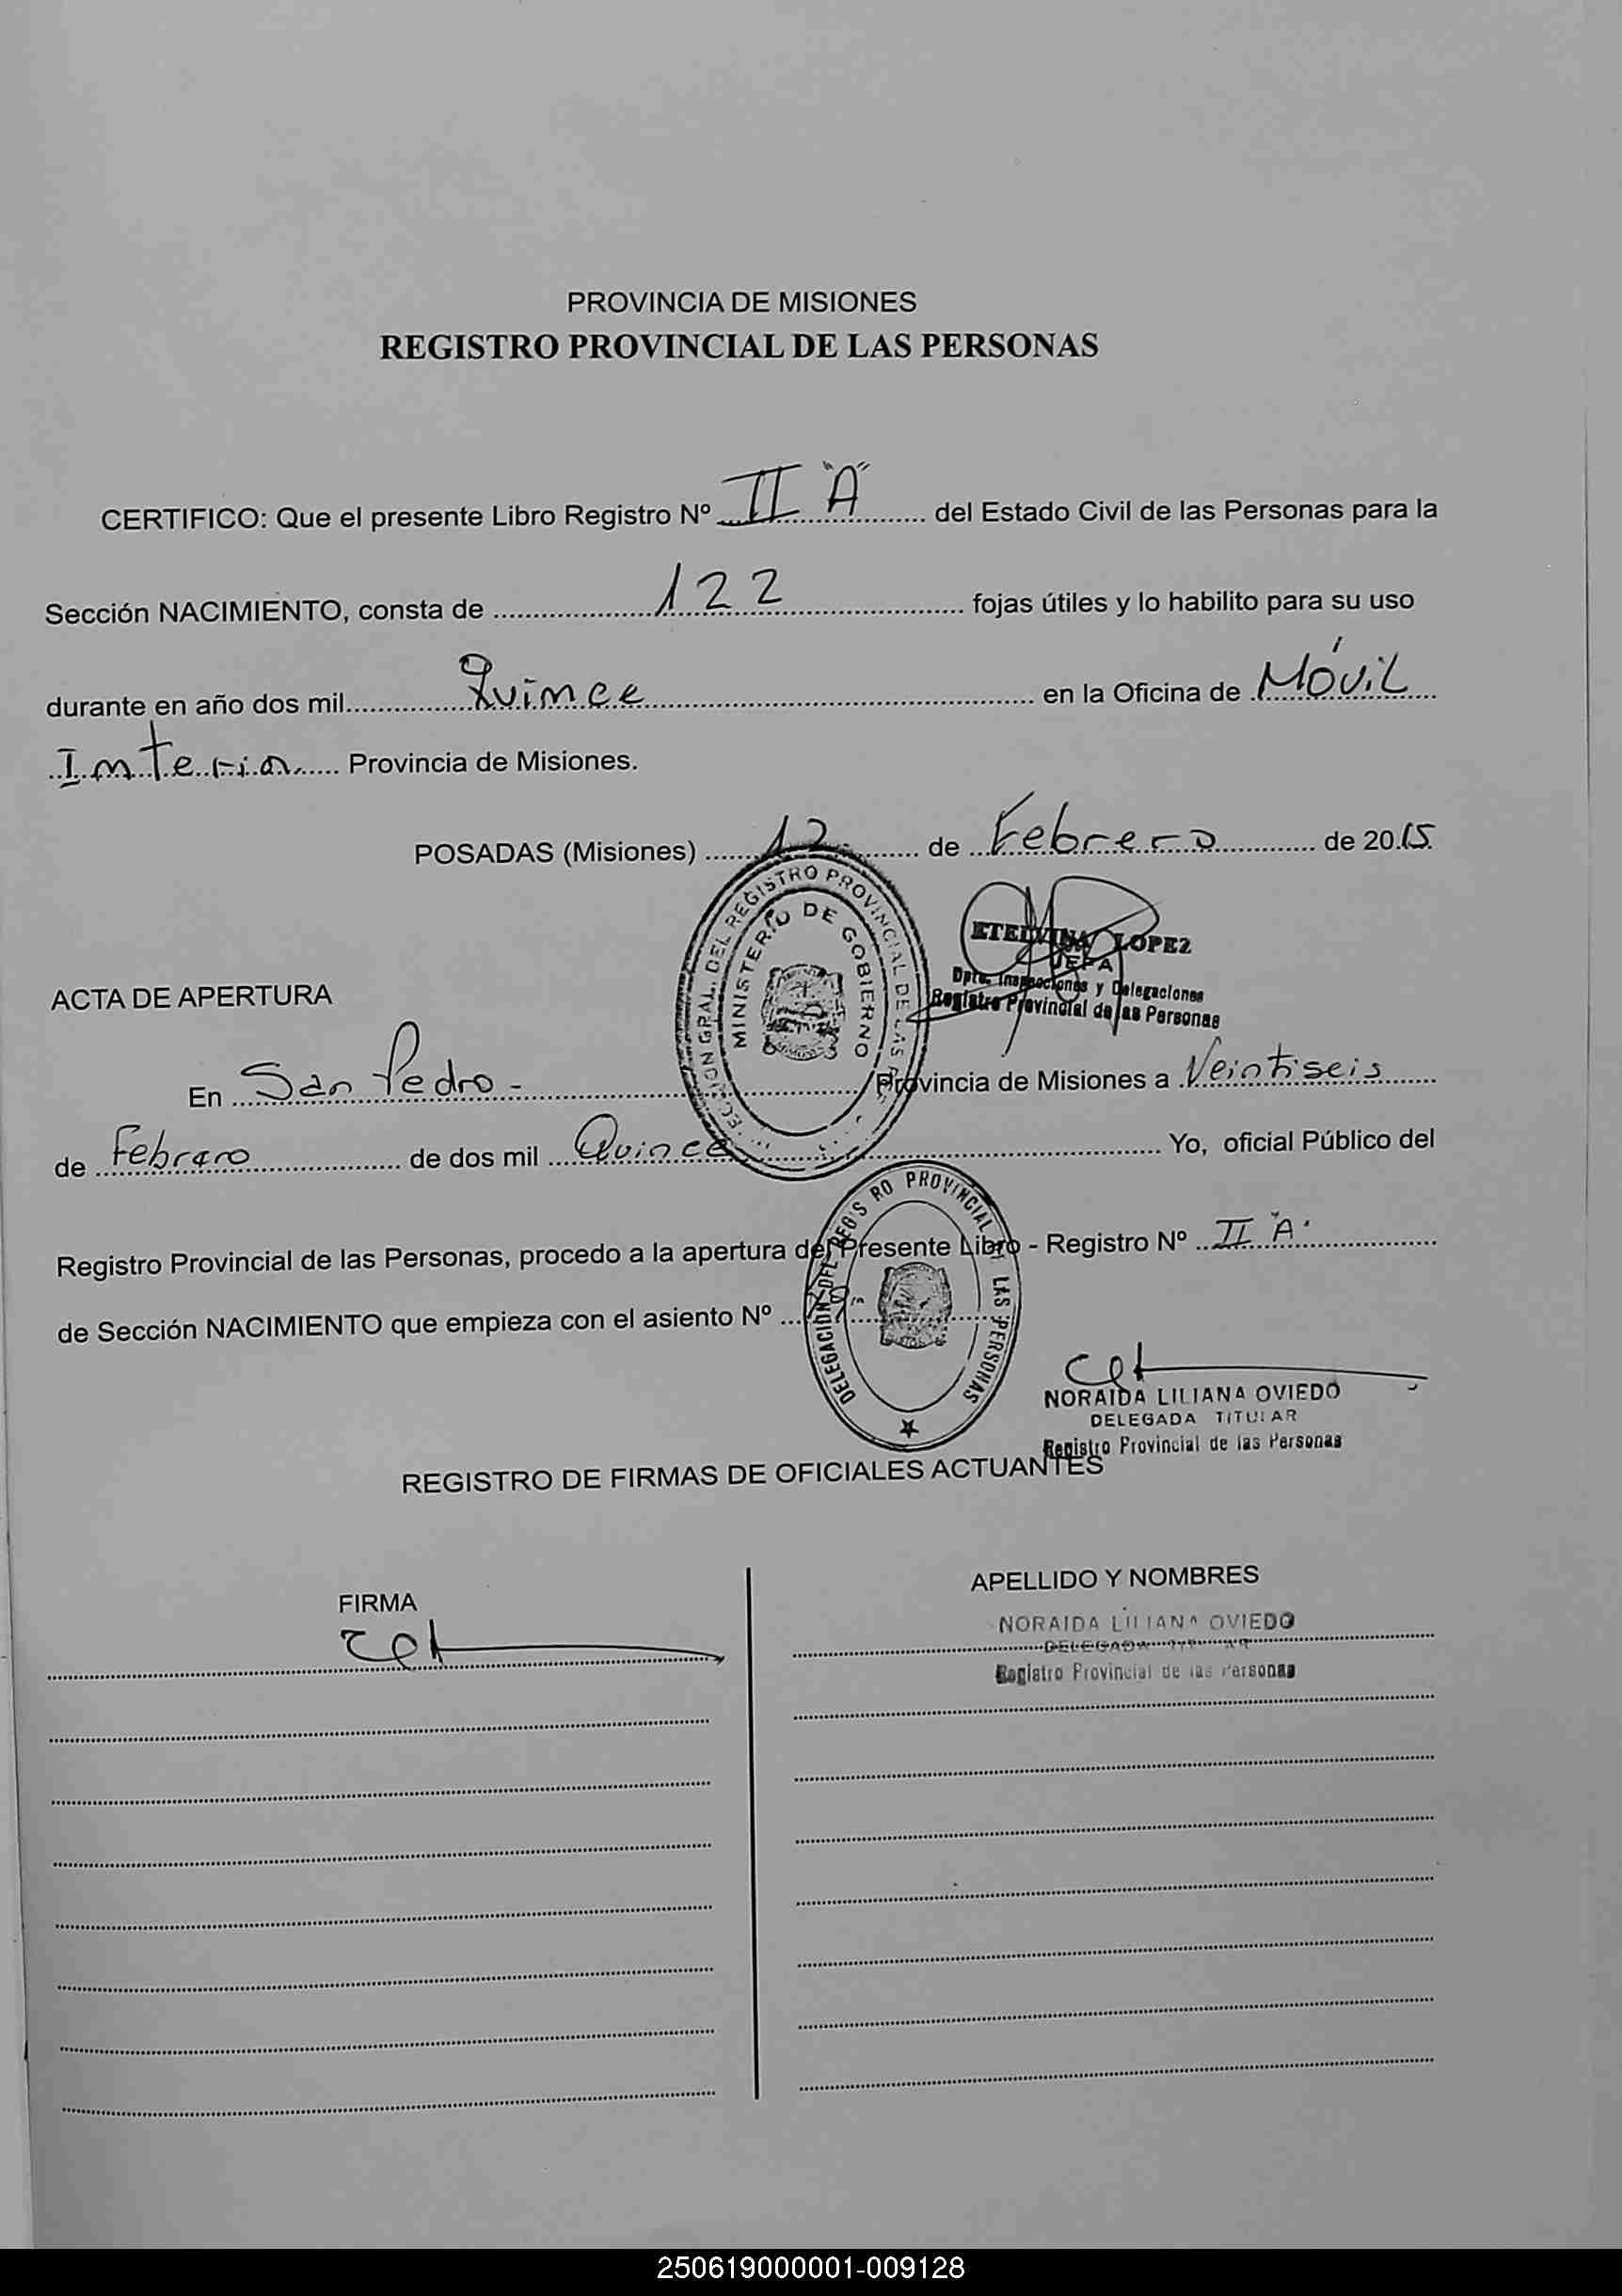 PROVINCIA DE MISIONES
REGISTRO PROVINCIAL DE LAS PERSONAS
CERTIFICO: Que el presente Libro Registro Nº II "A" del Estado Civil de las Personas para la
Sección NACIMIENTO, consta de 122 fojas útiles y lo habilito para su uso
durante en año dos mil Quince en la Oficina de Móvil
Interior Provincia de Misiones.
POSADAS (Misiones) 12 de Febrero de 2015
REGISTRO PROVINCIAL DE LAS
MINISTERIO DE GOBIERNO
ETELVINA LOPEZ
JEFA
Dpto. Inspecciones y Delegaciones
Registro Provincial de las Personas
ACTA DE APERTURA
En San Pedro - Provincia de Misiones a Veintiseis
de Febrero de dos mil Quince Yo, oficial Público del
Registro Provincial de las Personas, procedo a la apertura del Presente Libro - Registro Nº II "A"
de Sección NACIMIENTO que empieza con el asiento Nº
DELEGACIÓN DEL REGISTRO PROVINCIAL DE LAS PERSONAS
NORAIDA LILIANA OVIEDO
DELEGADA TITULAR
Registro Provincial de las Personas
REGISTRO DE FIRMAS DE OFICIALES ACTUANTES
FIRMA
APELLIDO Y NOMBRES
NORAIDA LILIANA OVIEDO
DELEGADA TITULAR
Registro Provincial de las Personas
250619000001-009128